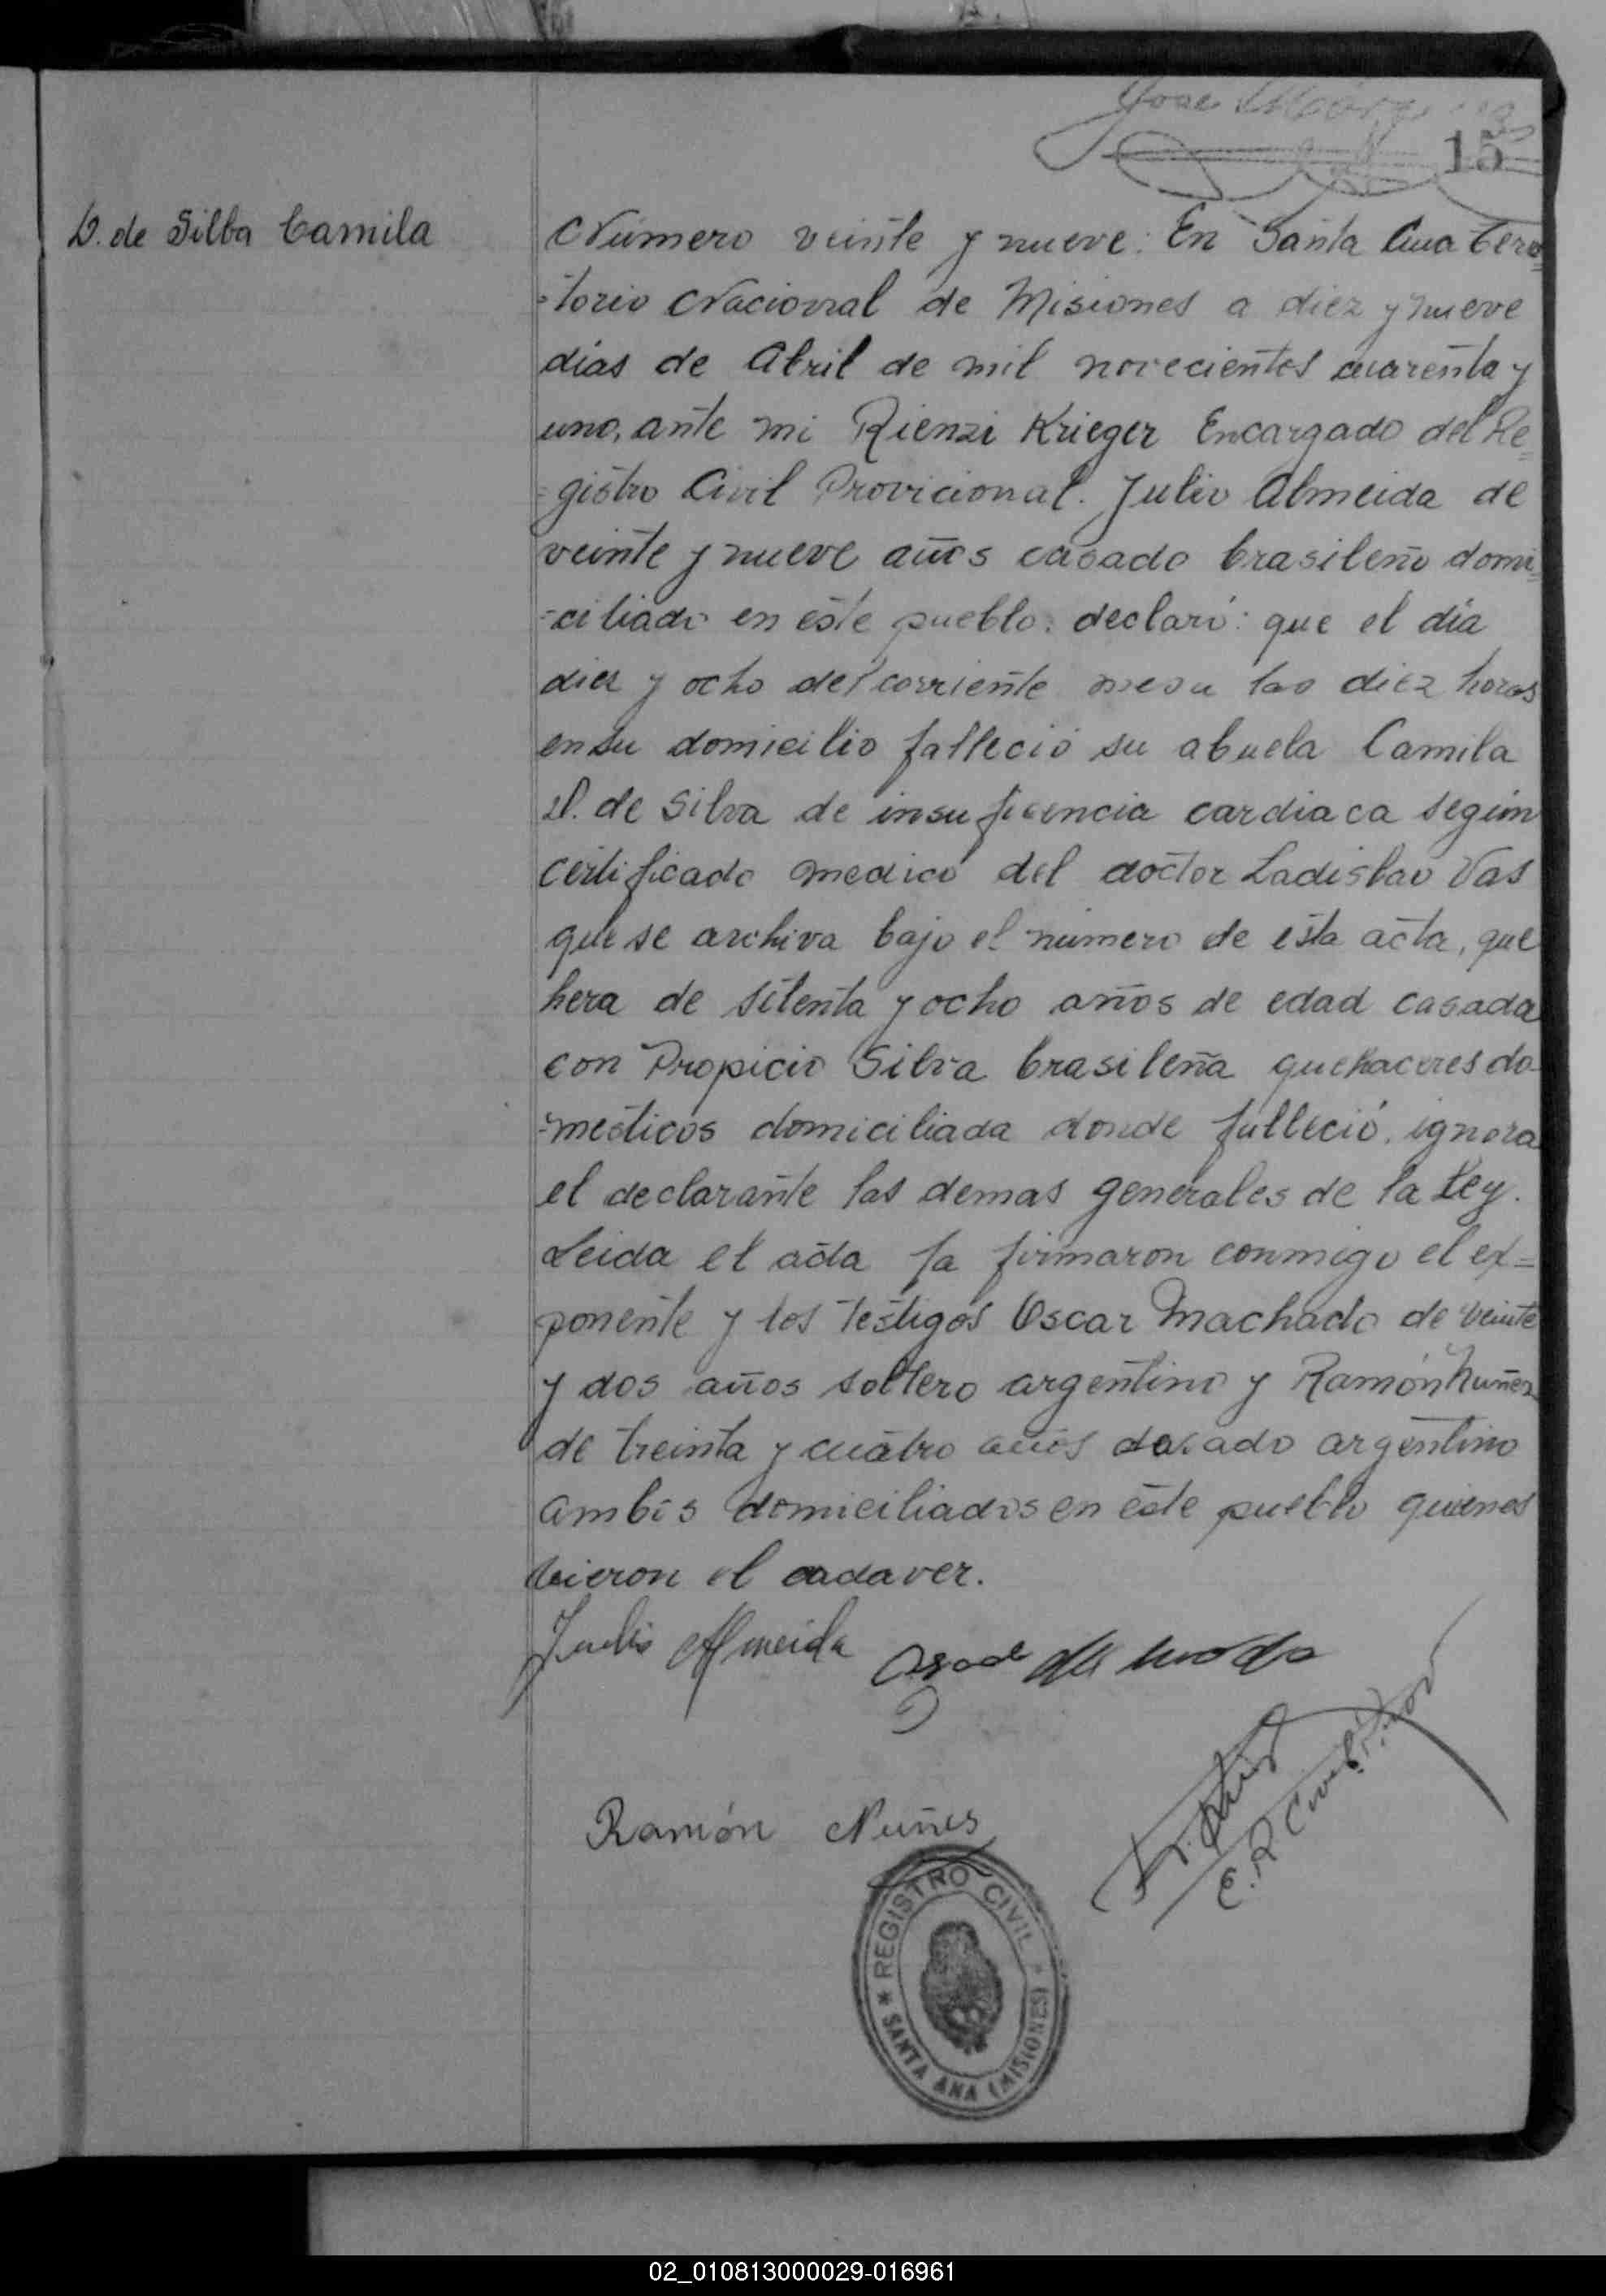 Jose
15
D. de Silba Camila
Número veinte y nueve: En Santa Ana Terri=
=torio Nacional de Misiones a diez y nueve
días de Abril de mil novecientos cuarenta y
uno, ante mi Rienzi Krieger Encargado del Re=
=gistro Civil Provicional. Julio Almeida de
veinte y nueve años casado brasileño domi=
=ciliado en este pueblo: declaró: que el día
diez y ocho del corriente mes a las diez horas
en su domicilio falleció su abuela Camila
D. de Silva de insuficencia cardiaca según
certificado medico del doctor Ladislao Vas
que se archiva bajo el número de esta acta, que
hera de setenta y ocho años de edad casada
con Propicio Silva brasileña quehaceres do
=mesticos domiciliada donde falleció, ignora
el declarante las demas generales de la Ley.
Leida el acta la firmaron conmigo el ex=
ponente y los testigos Oscar Machado de veinte
y dos años soltero argentino y Ramón Nuñez
de treinta y cuatro años casado argentino
ambos domiciliados en este pueblo quienes
vieron el cadaver.
Julio Almeida
Ramón Nuñes
E. R. Civil
* REGISTRO CIVIL * SANTA ANA (MISIONES)
02_010813000029-016961